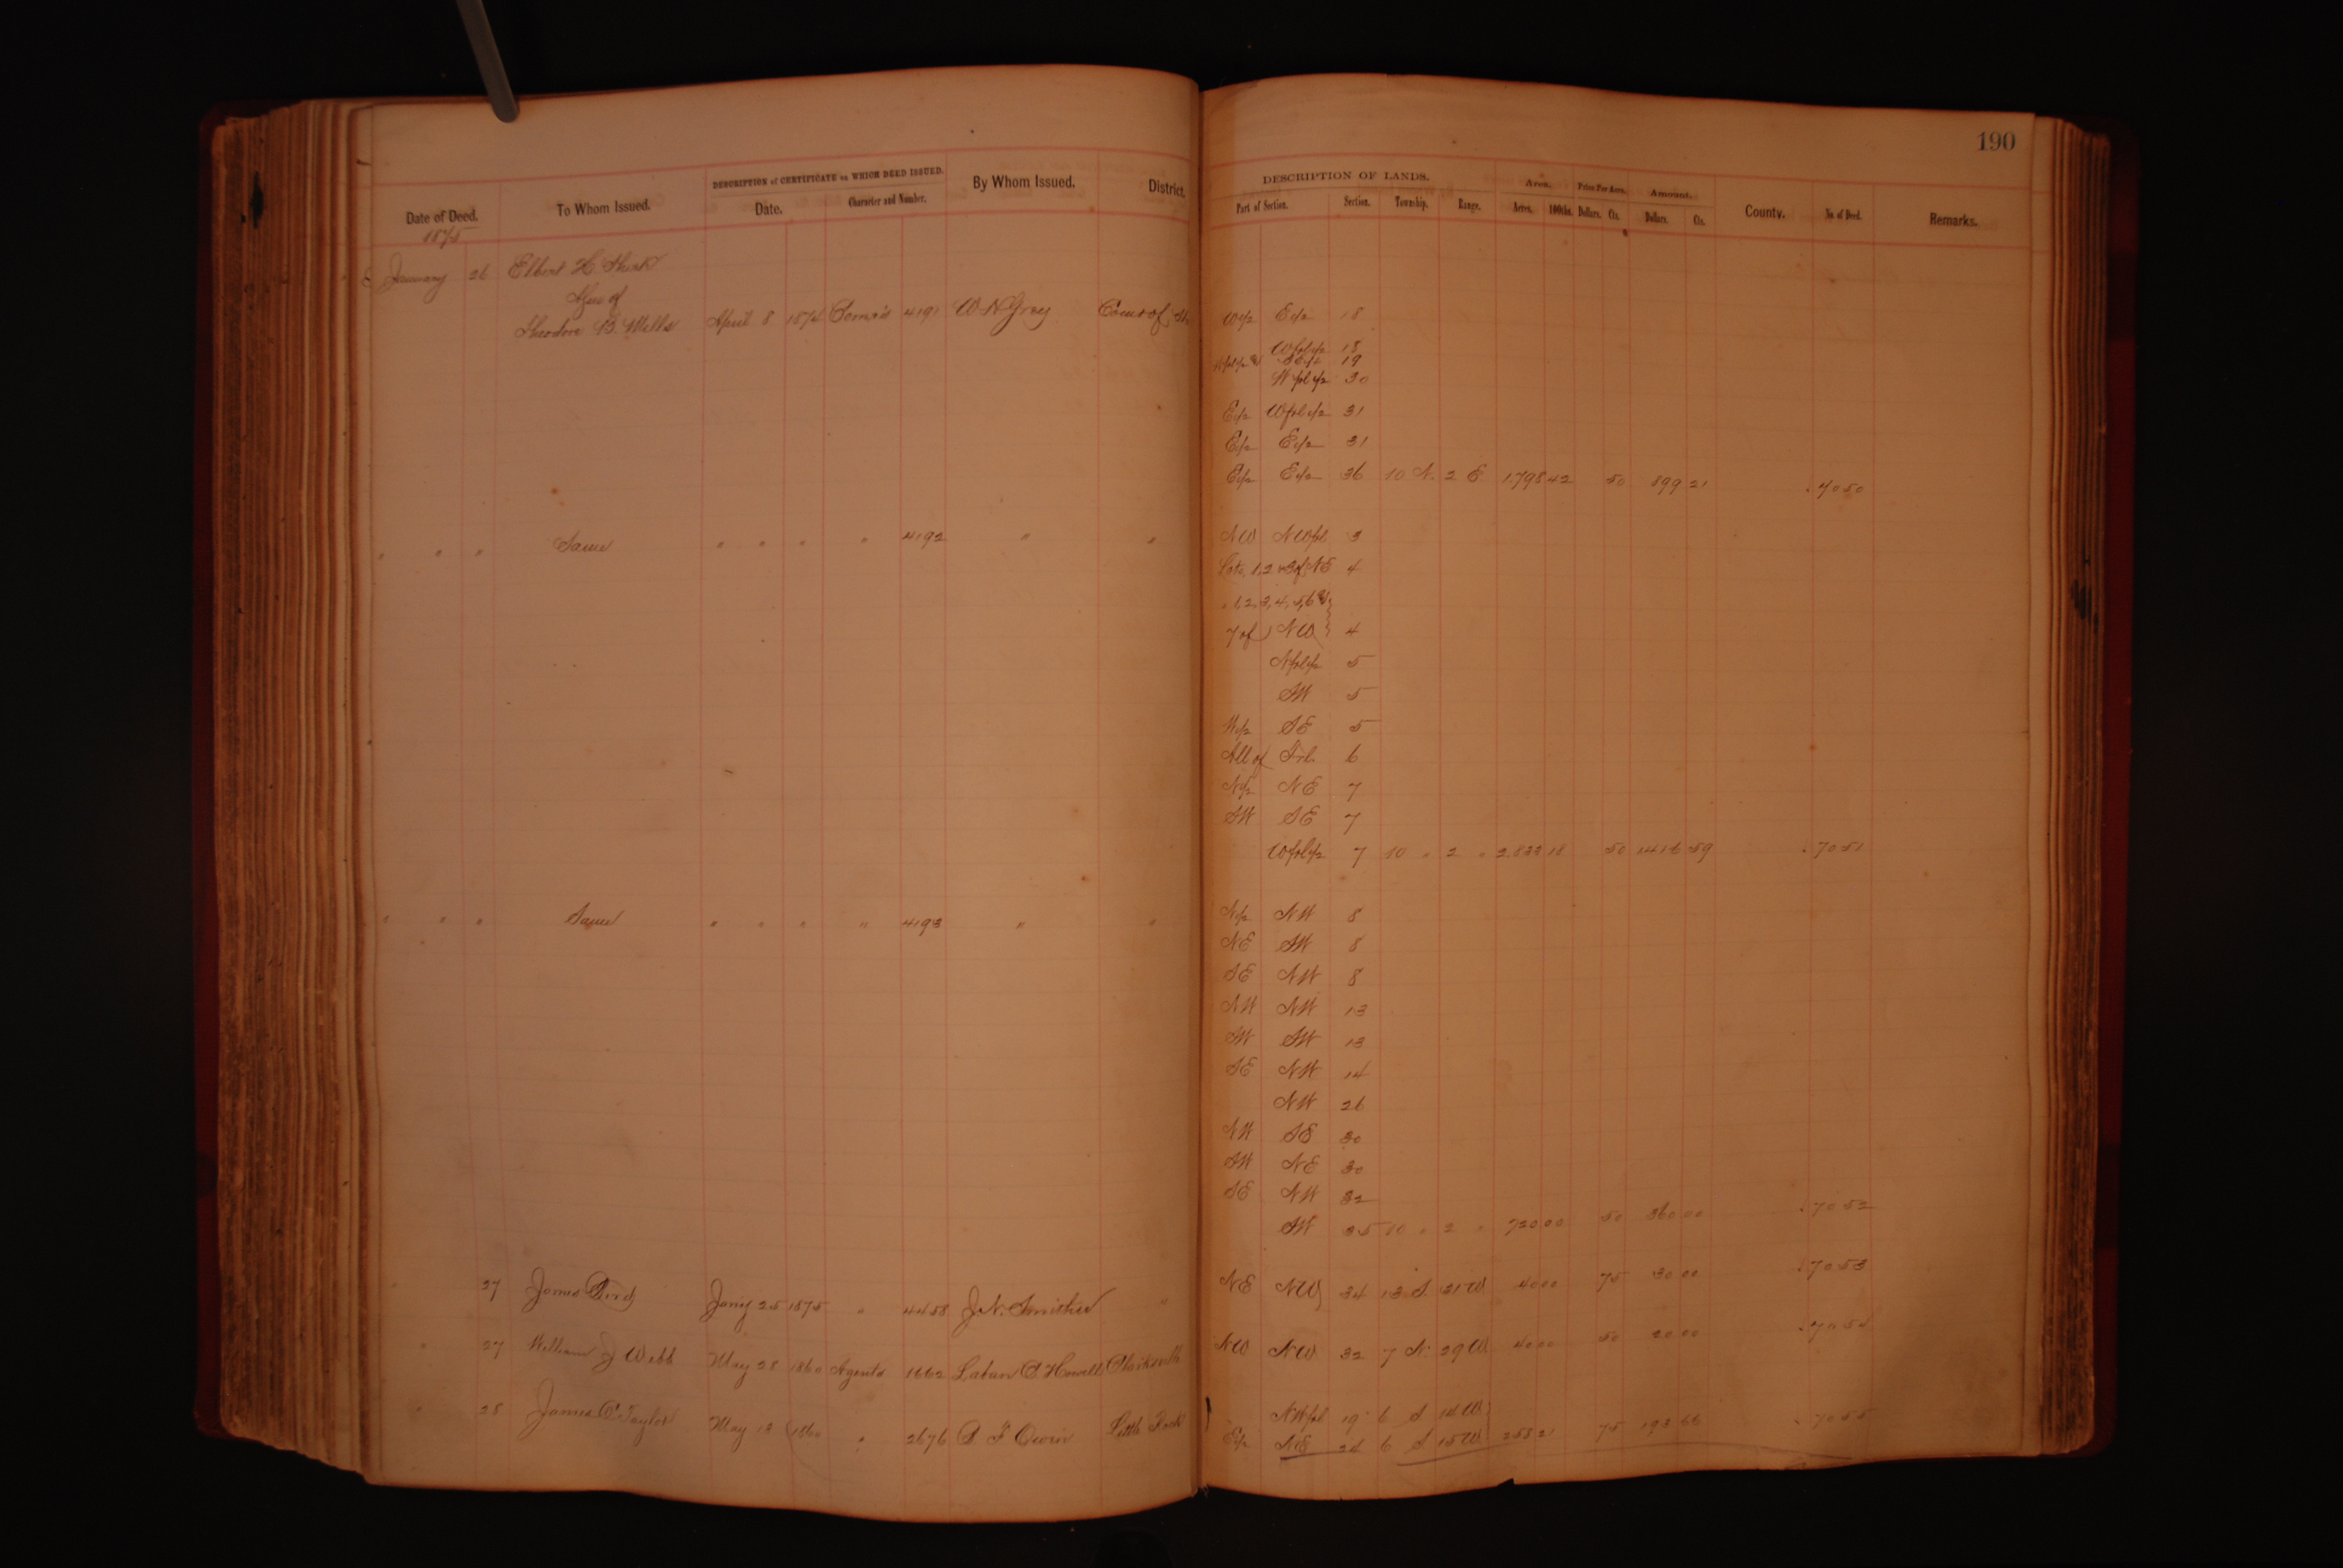 190
DESCRIPTION of CERTIFICATE on WHICH DEED ISSUED.
Date of Deed. To Whom Issued. Date. Character and Number. By Whom Issued. District.
DESCRIPTION OF LANDS. Area. Price Per Acre. Amount.
Part of Section. Section. Township. Range. Acres. 100ths. Dollars. Cts. Dollars. Cts. County. No. of Deed. Remarks.
1875
January 26 Elbert H. Shirk
Asgee of
Theodore B. Mills April 8 1874 Comrs 4191 W N Grey Comr of W1/2 E1/2 18
Wfrl1/2 18
19
Wfrl1/2 30
E1/2 Wfrl1/2 31
E1/2 E1/2 31
E1/2 E1/2 36 10 N. 2 E 1.798 42 50 899 21 7050
" " " Same " " " " 4192 " " NW NWfrl 3
Lots 1,2 & 3 of NE 4
" 1,2,3,4,5,6 &
7 of NW 4
Nfrl1/2 5
SW 5
W1/2 SE 5
All of Frl. 6
N1/2 NE 7
SW SE 7
Wfrl1/2 7 10 " 2 " 2.833 18 50 1416 59 7051
" " " Same " " " " 4193 " " N1/2 NW 8
NE SW 8
SE NW 8
NW NW 13
SW SW 13
SE NW 14
NW 26
NW SE 30
SW NE 30
SE NW 32
SW 35 10 " 2 " 720 00 50 360 00 7052
27 James Bird Jany 25 1875 " 4458 J.N. Smithee " NE NW 34 13 S. 21 W 40 00 75 30 00 7053
" 27 William J Webb May 28 1860 Agents 1662 Laban C. Howell Clarksville NW NW 32 7 N. 29 W. 40 00 50 20 00 7054
" 28 James C Taylor May 12 1860 " 2676 D F Owen Little Rock NWfrl 19 6 S 14 W
E1/2 NE 24 6 S 15 W 258 21 75 193 66 7055